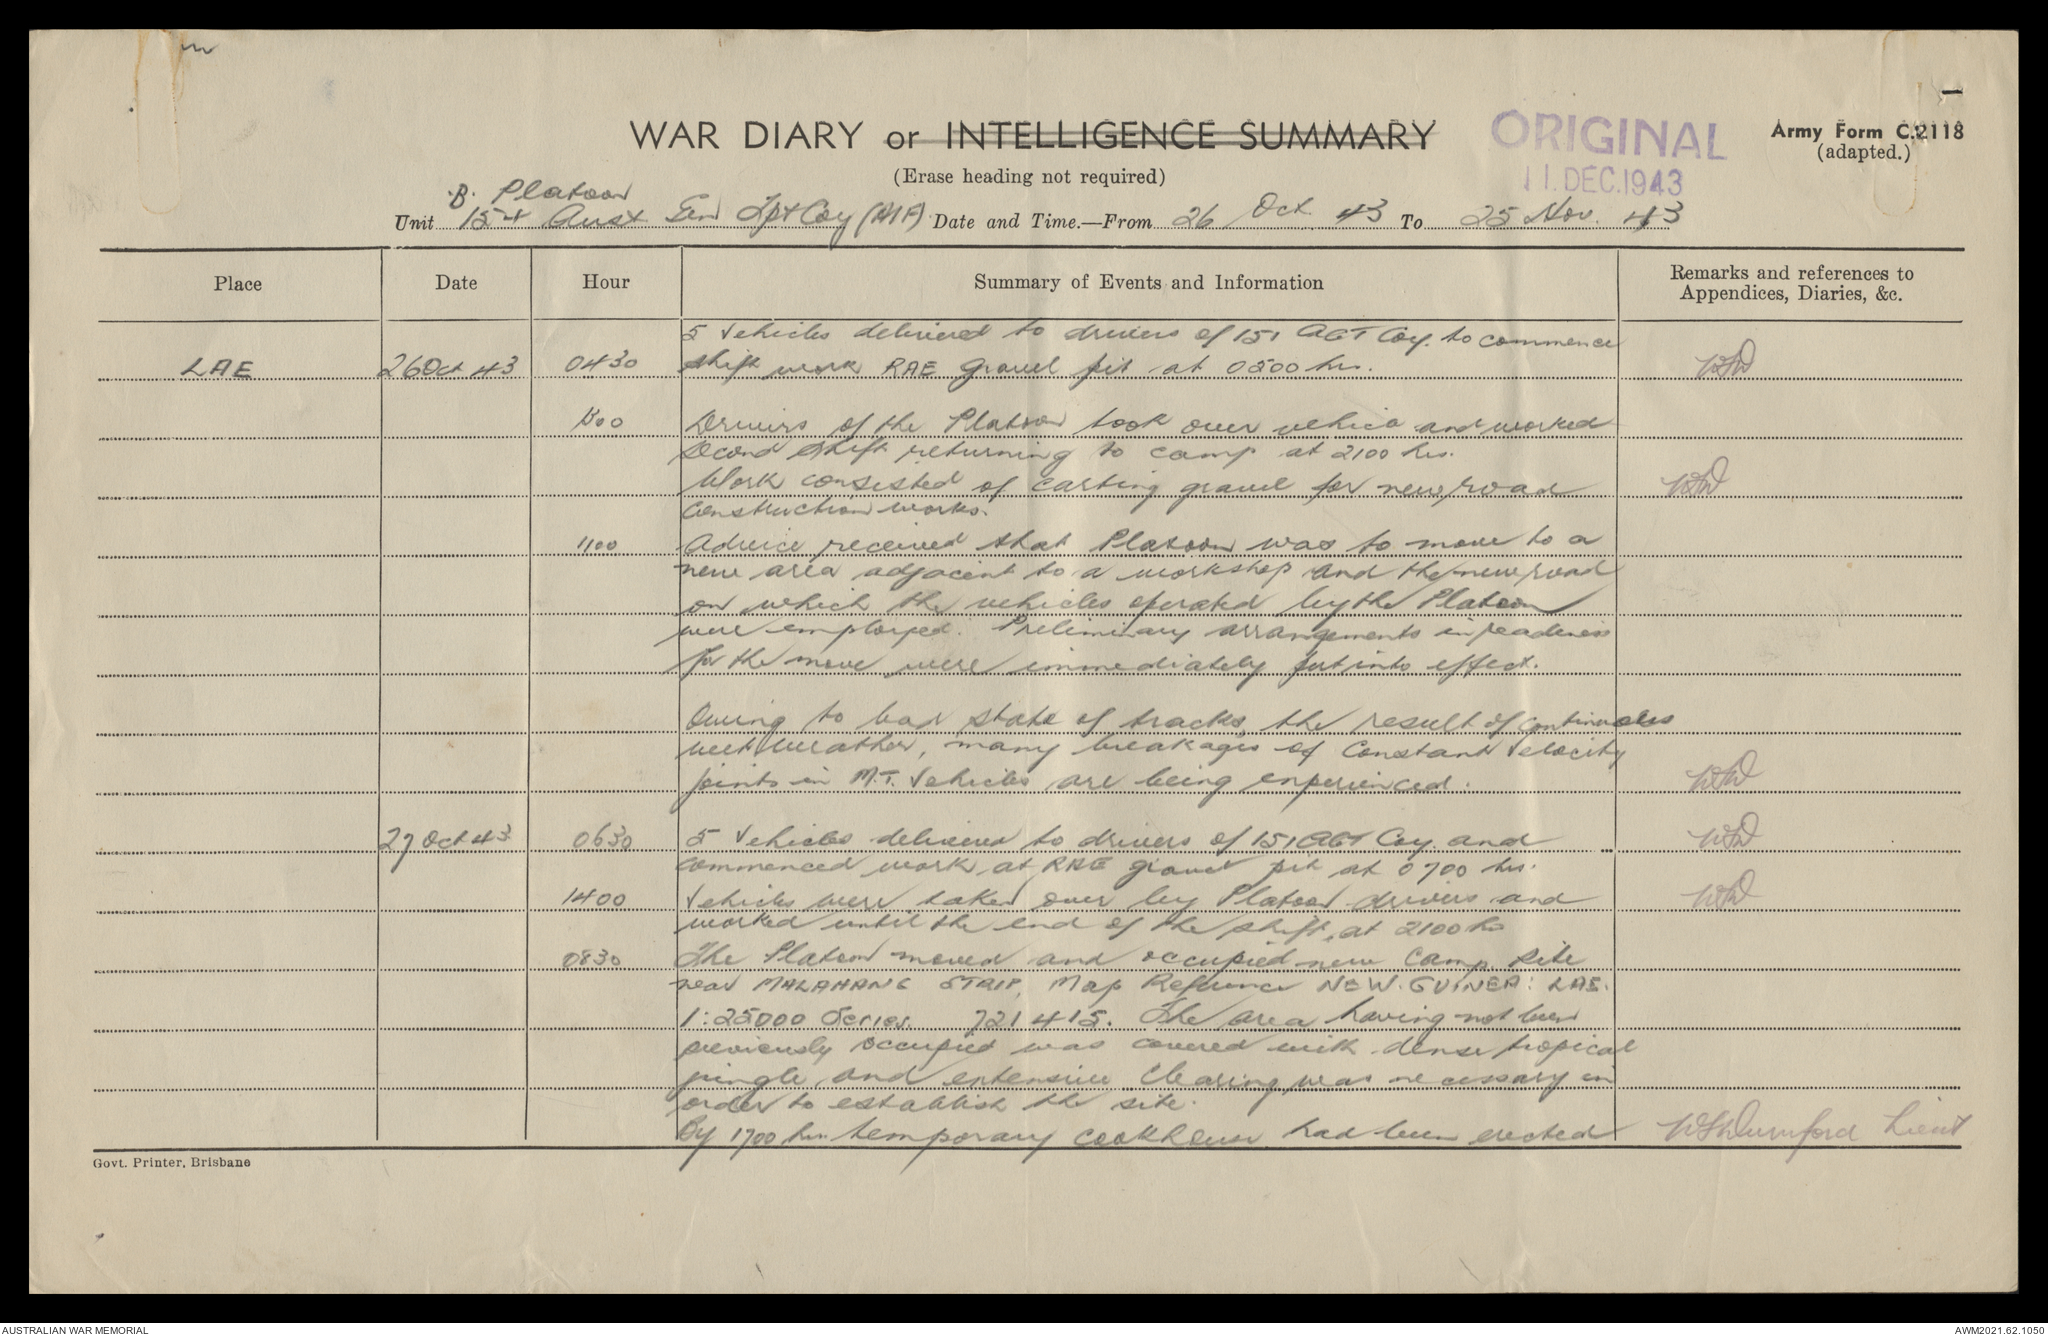 WAR DIARY or INTELLIGENCE SUMMARY
ORIGINAL
11. DEC. 1943
Army Form C.2118
(adapted.)
(Erase heading not required)
B. Platoon
Unit 154 Aust Gen Tpt Coy (AIF) Date and Time.—From 26 Oct. 43 To 25 Nov. 43
Place Date Hour Summary of Events and Information Remarks and references to
Appendices, Diaries, &c.
5 Vehicles delivered to drivers of 151 AGT Coy. to commence
LAE 26 Oct 43 0430 shift work RAE gravel pit at 0500 hrs.
Drivers of the Platoon took over vehicle and worked
second shift returning to camp at 2100 hrs.
Work consisted of carting gravel for new road
construction works.
1100 Advice received that Platoon was to move to a
new area adjacent to a workshop and the new road
on which the vehicles operated by the Platoon
were employed. Preliminary arrangements in readiness
for the move were immediately put into effect.
Owing to bad state of tracks, the result of continuous
wet weather, many breakages of Constant Velocity
joints in M.T. Vehicles are being experienced.
27 Oct 43 0630 5 Vehicles delivered to drivers of 151 AGT Coy. and
commenced work at RAE gravel pit at 0700 hrs.
1400 Vehicles were taken over by Platoon drivers and
worked until the end of the shift, at 2100 hrs
0830 The Platoon moved and occupied new Camp Site
near MALAHANG STRIP, Map Reference NEW. GUINEA: LAE.
1:25000 Series. 721415. The area having not been
previously occupied was covered with dense tropical
jungle, and extensive clearing was necessary in
order to establish the site.
By 1700 hrs temporary cookhouse had been erected Lieut
Govt. Printer, Brisbane
AUSTRALIAN WAR MEMORIAL AWM2021.62.1050